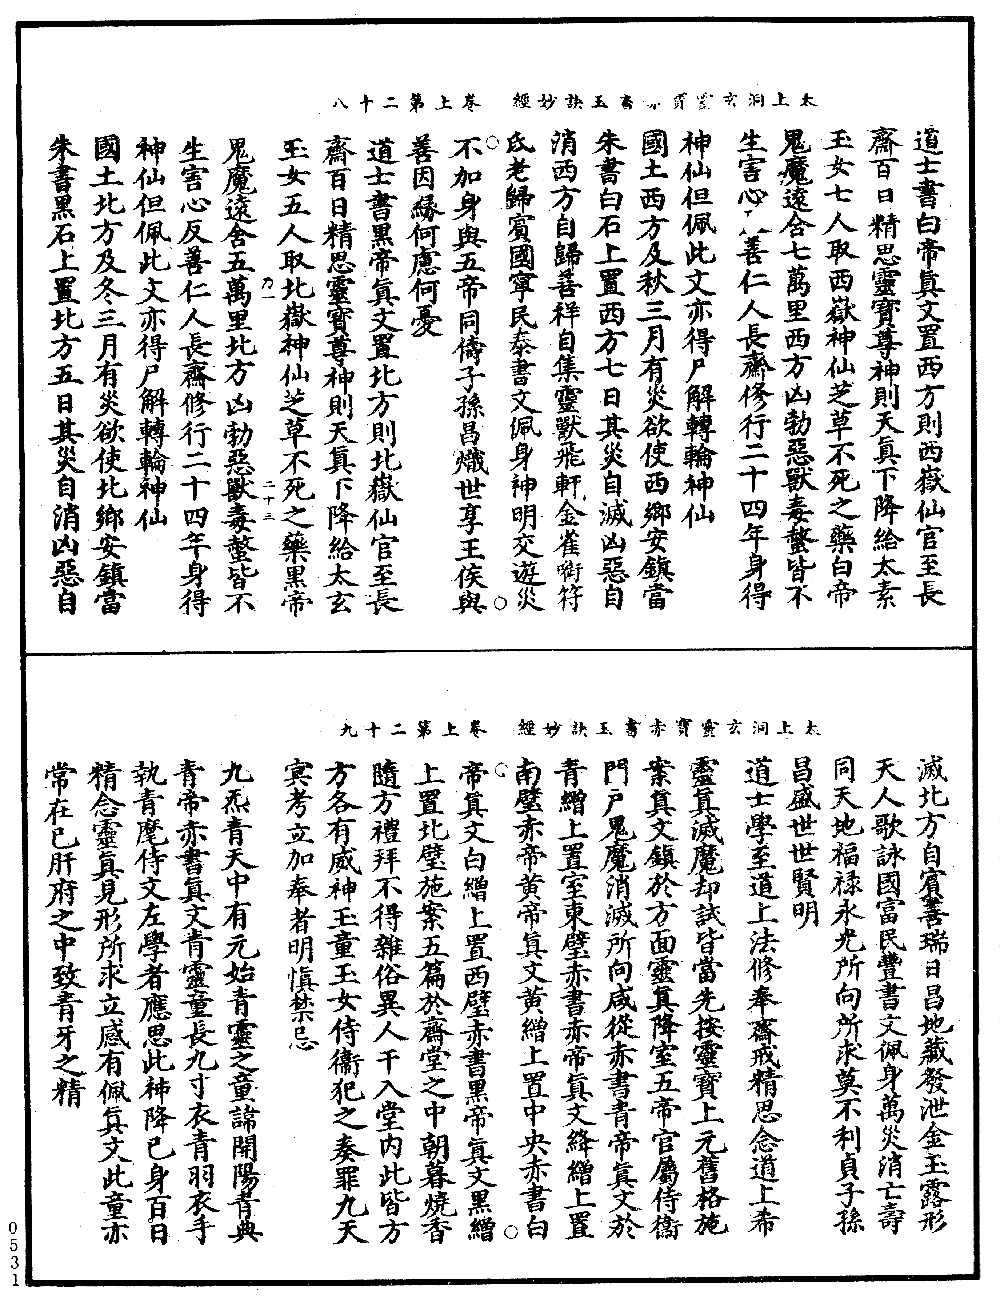 太上洞玄靈寶赤書玉訣妙經　卷上第二十八
道士書白帝眞文置西方則西嶽仙官至長
齋百日精思靈寶尊神則天眞下降給太素
玉女七人取西嶽神仙芝草不死之藥白帝
鬼魔遠舍七萬里西方凶勃惡獸毒螫皆不
生害心善仁人長齋修行二十四年身得
神仙但佩此文亦得尸解轉輪神仙
國土西方及秋三月有災欲使西鄉安鎮當
朱書白石上置西方七日其災自滅凶惡自
消西方自歸善祥自集靈獸飛軒金雀㘅符
氐老歸賓國寧民泰書文佩身神明交遊災
不加身與五帝同儔子孫昌熾世享王侯與
善因緣何慮何憂
道士書黑帝眞文置北方則北嶽仙官至長
齋百日精思靈寶尊神則天眞下降給太玄
玉女五人取北嶽神仙芝草不死之藥黑帝
乃一　二十三
鬼魔遠舍五萬里北方凶勃惡獸毒螫皆不
生害心反善仁人長齋修行二十四年身得
神仙但佩此文亦得尸解轉輪神仙
國土北方及冬三月有災欲使北鄉安鎮當
朱書黑石上置北方五日其災自消凶惡自
太上洞玄靈寶赤書玉訣妙經　卷上第二十九
滅北方自賓善瑞日昌地藏發泄金玉露形
天人歌詠國富民豐書文佩身萬災消亡壽
同天地福祿永光所向所求莫不利貞子孫
昌盛世世賢明
道士學至道上法修奉齋戒精思念道上希
靈眞滅魔却試皆當先按靈寶上元舊格施
案眞文鎮於方面靈眞降室五帝官屬侍衞
門戶鬼魔消滅所向咸從赤書青帝眞文於
青繒上置室東壁赤書赤帝眞文絳繒上置
南壁赤帝黃帝眞文黃繒上置中央赤書白
帝眞文白繒上置西壁赤書黑帝眞文黑繒
上置北壁施案五篇於齋堂之中朝暮燒香
隨方禮拜不得雜俗異人干入堂內此皆方
方各有威神玉童玉女侍衞犯之奏罪九天
冥考立加奉者明愼禁忌
九炁青天中有元始青靈之童諱開陽昔典
青帝赤書眞文青靈童長九寸衣青羽衣手
執青麾侍文左學者應思此神降己身百日
精念靈眞見形所求立感有佩眞文此童亦
常在己肝府之中致青牙之精
0531